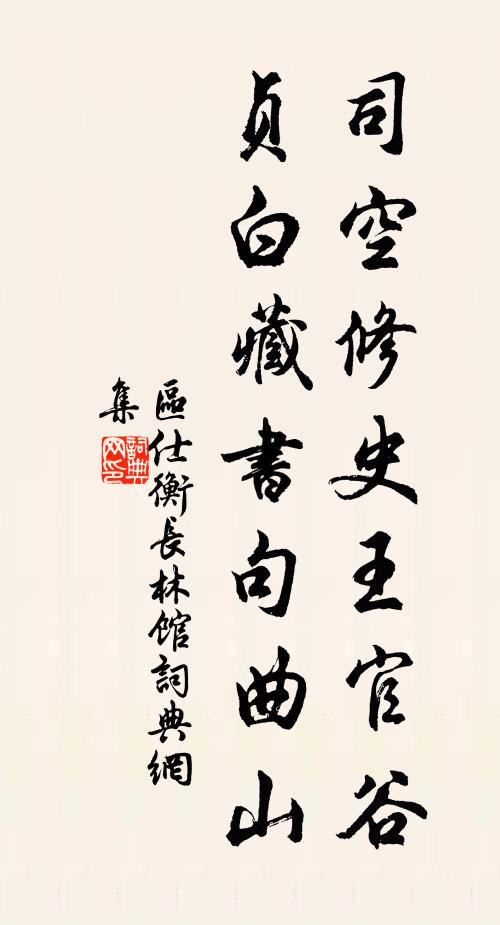 司空修史王官谷
貞白藏書句曲山
區仕衡長林館詞典網
集
詞典網印